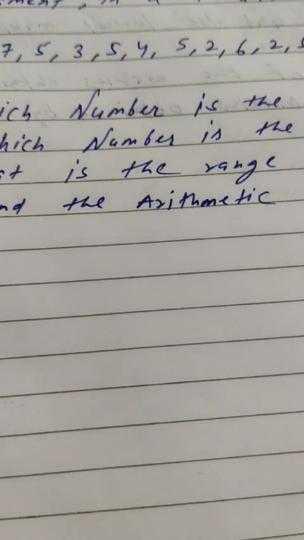 7, 5, 3, 5, 4, 5, 2, 6, 2, 5
ich Number is the
hich Number is the
at is the range
nd the Arithmetic